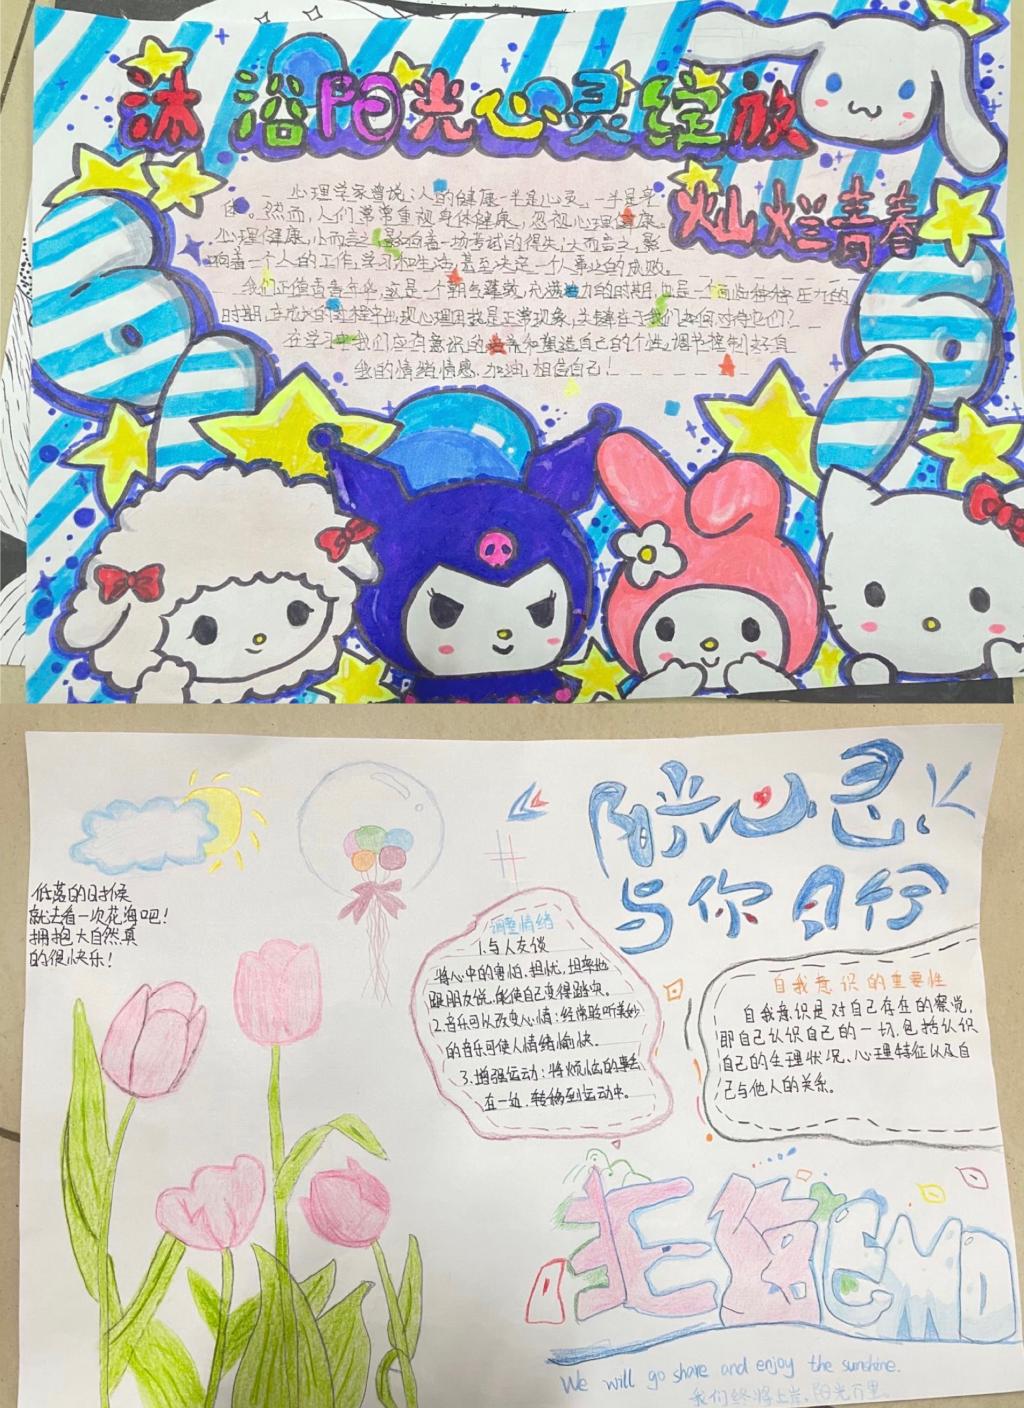 沐浴阳光心灵绽放
灿烂青春
心理学家曾说:人的健康一半是心灵,一半是身
体。然而,人们常常重视身体健康,忽视心理健康。
心理健康,小而言之,影响着一场考试的得失;大而言之,影
响着一个人的工作,学习和生活,甚至决定一个人事业的成败。
我们正值青春年华,这是一个朝气蓬勃,充满活力的时期,也是一个面临种种压力的
时期,在成长的过程中出现心理困扰是正常现象,关键在于我们如何对待它们?
在学习中我们应有意识的培养和塑造自己的个性,调节控制好自
我的情绪情感.加油,相信自己!
阳光心灵
与你同行
低落的时候
就去看一次花海吧!
拥抱大自然真
的很快乐!
调整情绪
1.与人交谈
将心中的害怕、担忧,坦率地
跟朋友说,能使自己变得踏实。
2.音乐可以改变心情:经常聆听美妙
的音乐可使人情绪愉快。
3.增强运动:将烦恼的事丢
在一边,转移到运动中。
自我意识的重要性
自我意识是对自己存在的察觉,
即自己认识自己的一切,包括认识
自己的生理状况、心理特征以及自
己与他人的关系。
拒绝EMO
We will go share and enjoy the sunshine.
我们终将上岸,阳光万里